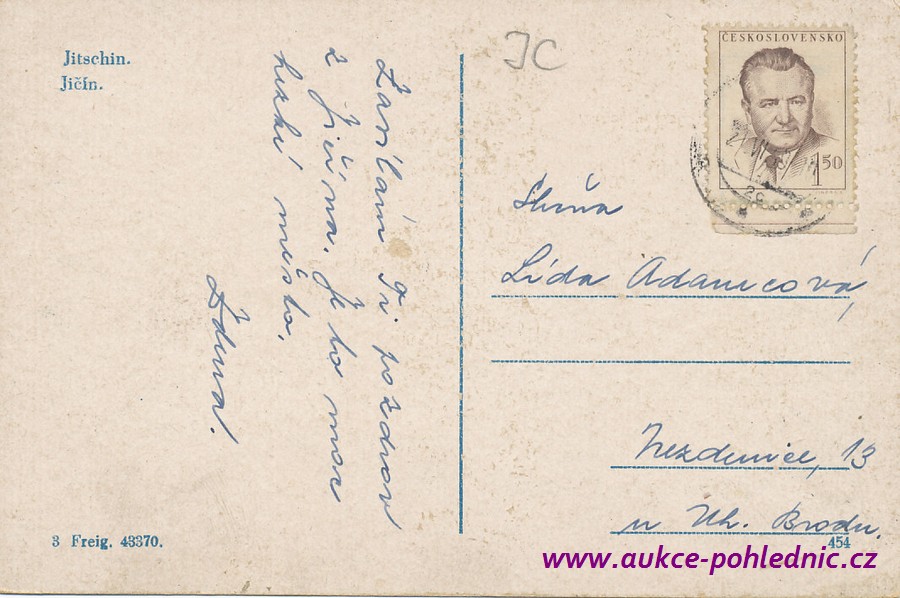 Jitschin.
Jičín.
JC
ČESKOSLOVENSKO
1 50
Zasílám Ti pozdrav
z Jičína. Je to moc
hezké město.
Zdena.
Slečna
Lída Adamcová,
Nezdenice, 13
u Uh. Brodu.
3 Freig. 43370.
454
www.aukce-pohlednic.cz